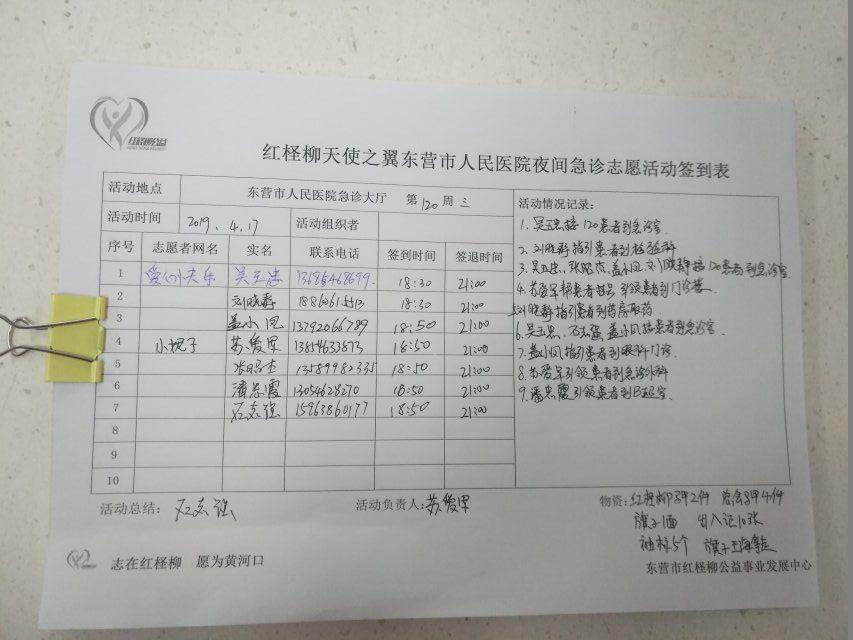 红柽柳公益
红柽柳天使之翼东营市人民医院夜间急诊志愿活动签到表
活动地点 东营市人民医院急诊大厅 第120周三
活动时间 2019.4.17 活动组织者
序号 志愿者网名 实名 联系电话 签到时间 签退时间
1 吴玉忠 18:30 21:00
2 刘晓静 18:30 21:00
3 盖小凤 13792066789 18:50 21:00
4 苏爱军 18:50 21:00
5 13589982335 18:50 21:00
6 潘忠霞 13054628270 18:50 21:00
7 石志强 15963860177 18:50 21:00
8
9
10
活动情况记录:
1.吴玉忠接120患者到急诊室
2.刘晓静指引患者到检验科
3.吴玉忠、盖小凤、刘晓静接120患者到急诊室
4.苏爱军帮患者引领患者到门诊楼
5.刘晓静指引患者到药房取药
6.吴玉忠、石志强、盖小凤接患者到急诊室
7.盖小凤指引患者到眼科门诊
8.苏爱军引领患者到急诊外科
9.潘忠霞引领患者到B超室
活动总结: 石志强
活动负责人:苏爱军
物资:
旗子1面 出入证10张
袖标5个
志在红柽柳 愿为黄河口
东营市红柽柳公益事业发展中心